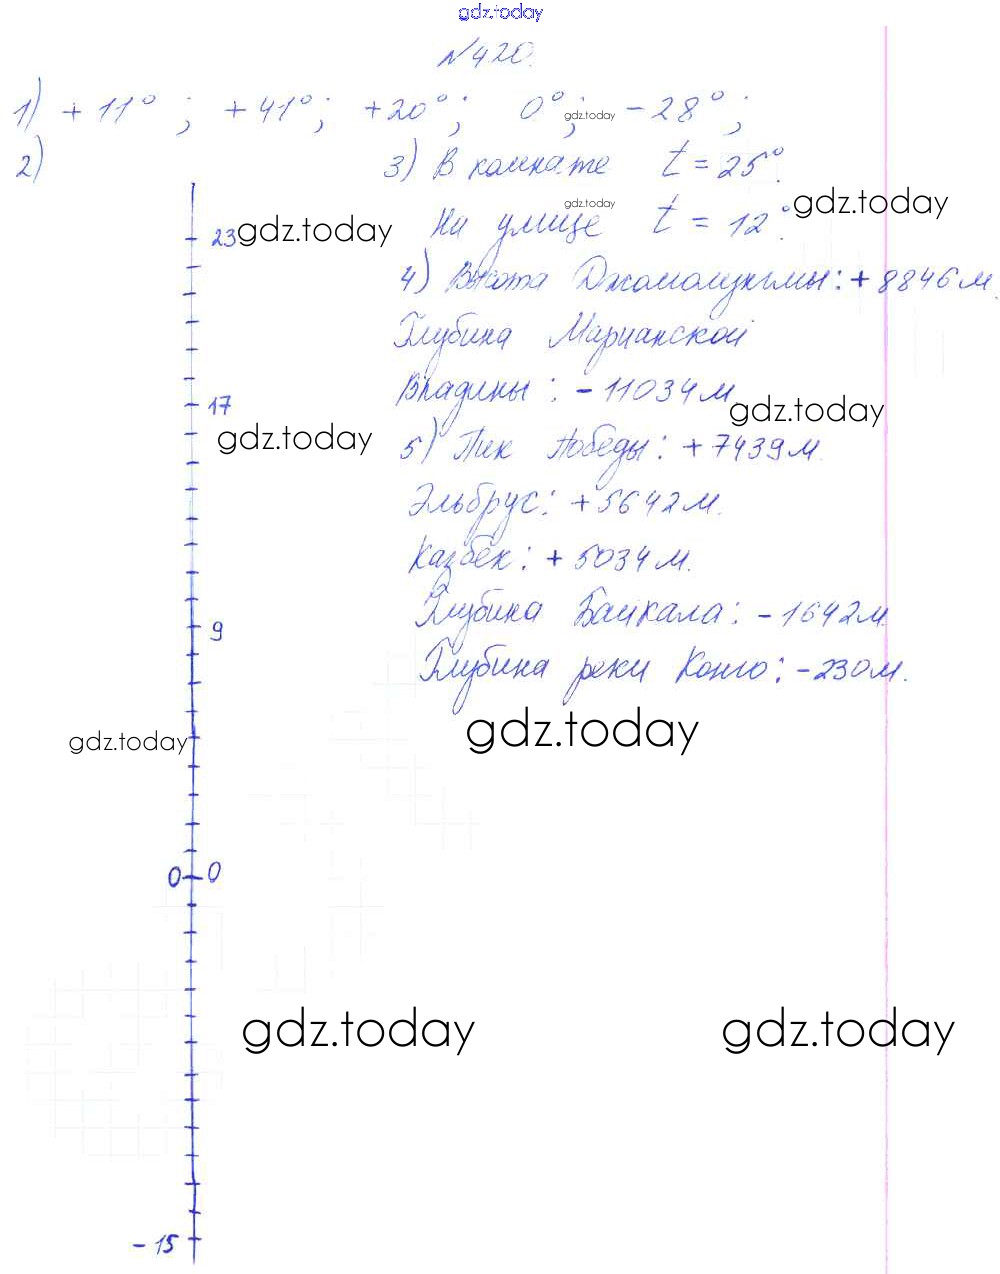 gdz.today
№420.
1) +11°; +41°; +20°; 0°; -28°;
gdz.today
2)
3) В комнате t = 25°.
gdz.today
На улице t = 12°.
gdz.today
23
gdz.today
4) Высота Джомолунгмы: +8846м.
Глубина Марианской
Впадины: -11034м.
17
gdz.today
gdz.today
5) Пик Победы: +7439м.
Эльбрус: +5642м.
Казбек: +5034м.
Глубина Байкала: -1642м
9
Глубина реки Конго: -230м.
gdz.today
gdz.today
0 0
gdz.today
gdz.today
-15